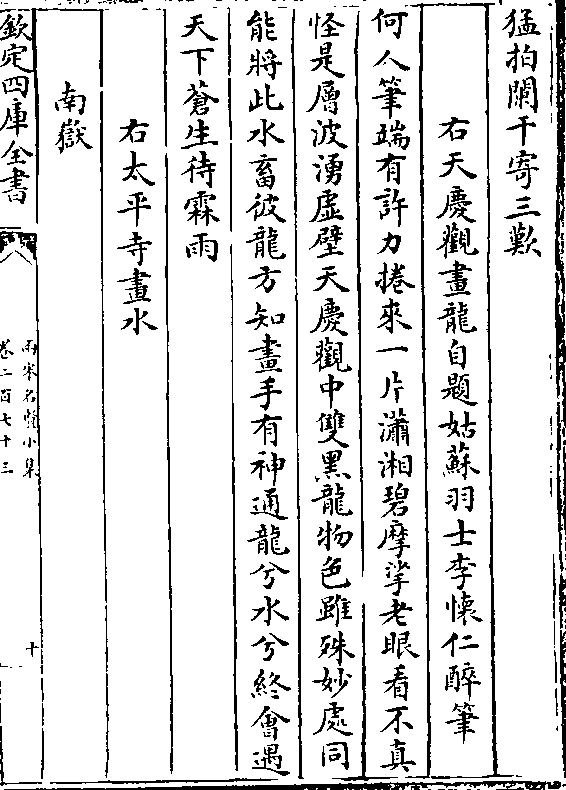 猛拍闌干寄三歎
右天慶觀畫龍自題姑蘇羽士李懷仁醉筆
何人筆端有許力捲來一片瀟湘碧摩挲老眼看不真
怪是層波湧虛壁天慶觀中雙黑龍物色雖殊妙處同
能將此水畜彼龍方知畫手有神通龍兮水兮終會遇
天下蒼生待霖雨
右太平寺畫水
南嶽
欽定四庫全書
兩宋名賢小集
卷二百七十三
十